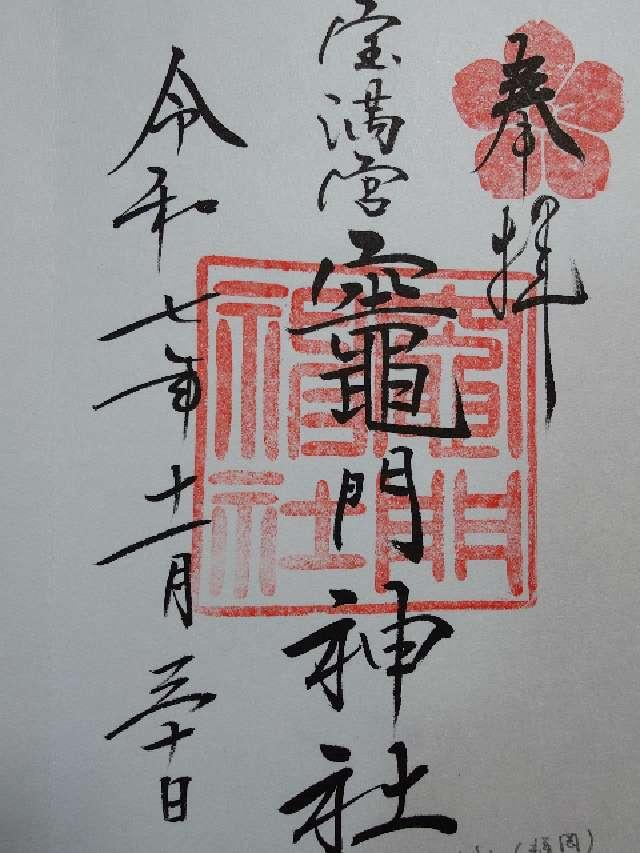 奉拝
宝満宮
竈門神社
竈門神社
令和七年十一月三十日
(福岡)